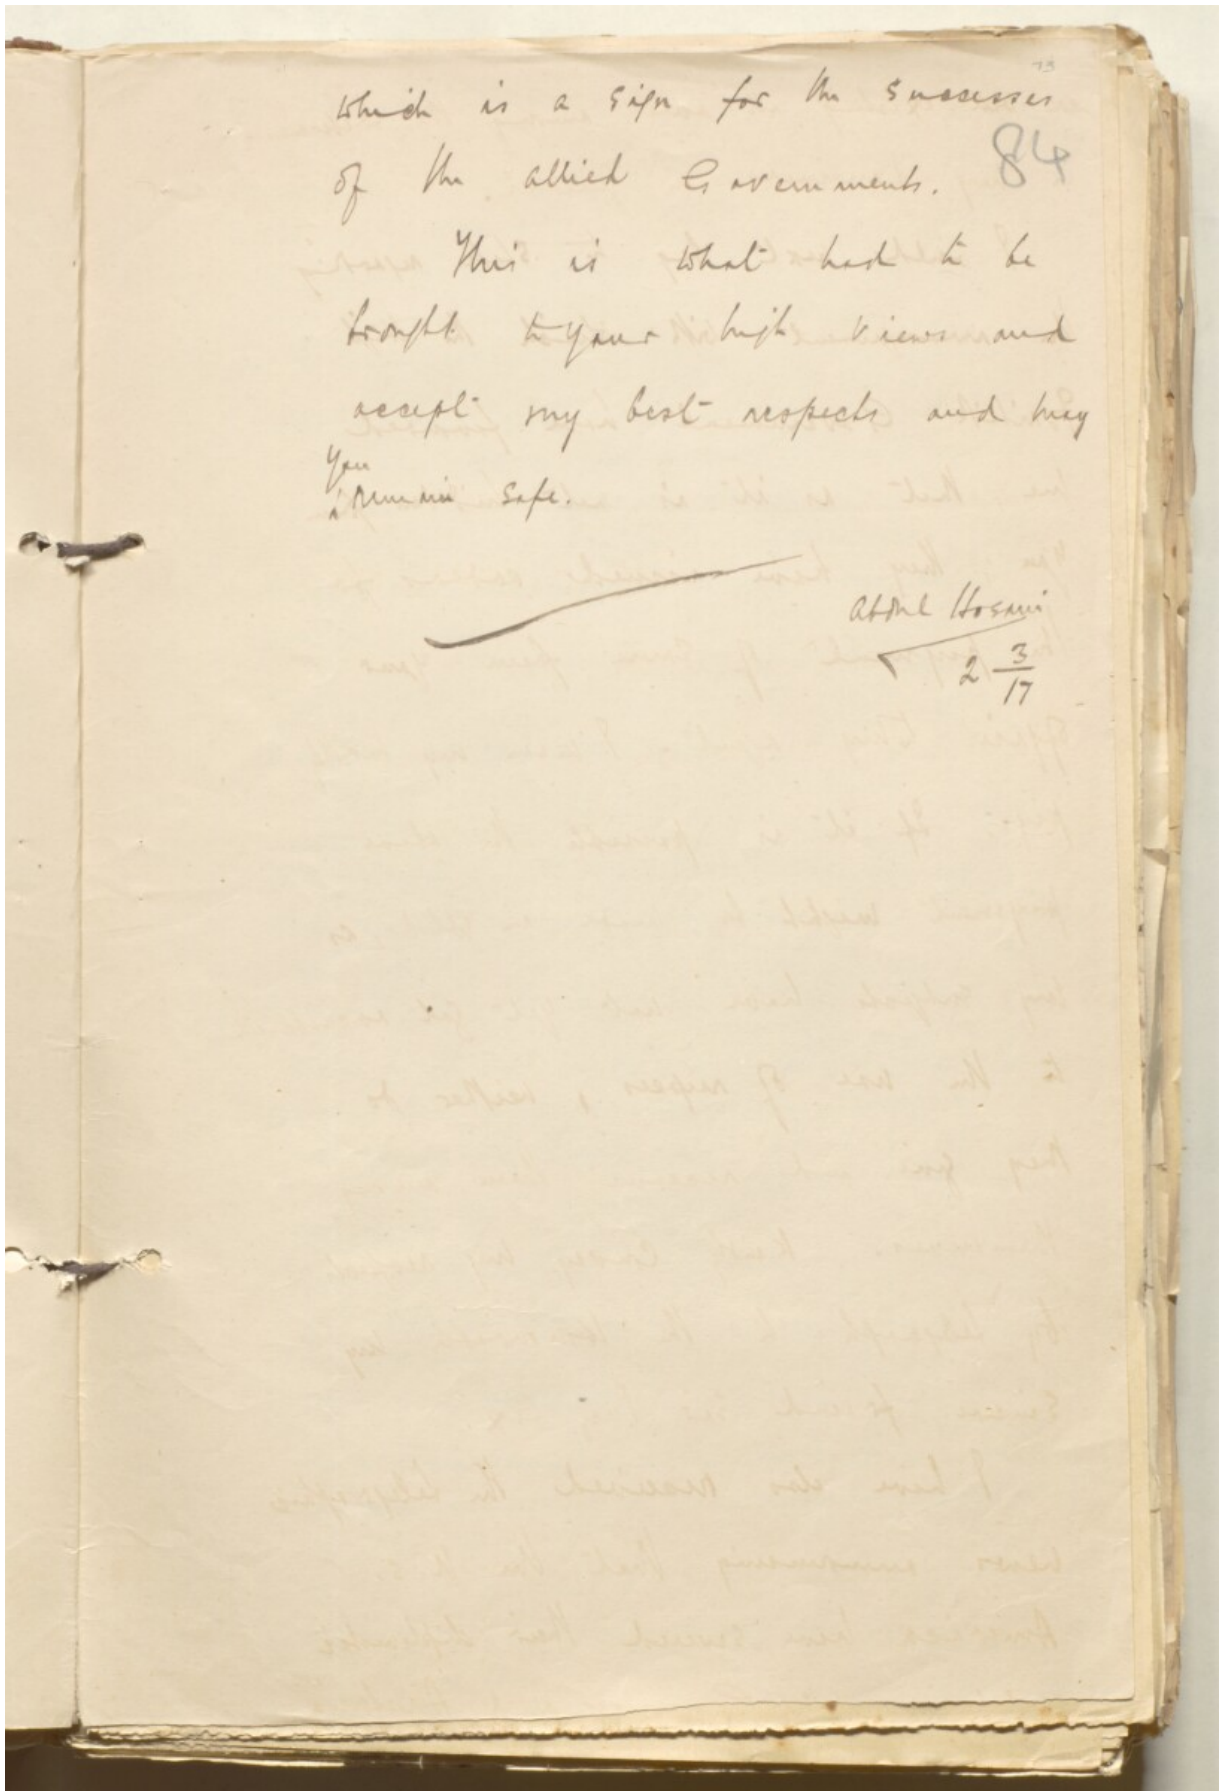 73
which is a sign for the successes
84
of the allied Governments.
This is what had to be
brought to your high views and
accept my best respects and may
you
^ remain safe.
Abdul Hosain
2 3/17